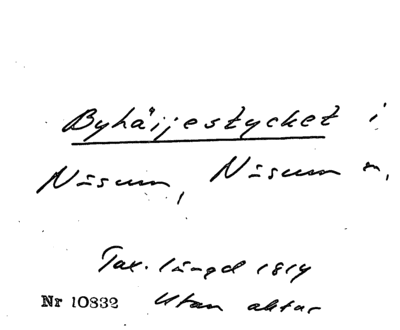 Byhäijestycket i
Näsum, Näsum sn,
Tax. längd 1819
Nr 10832 Utan aktnr